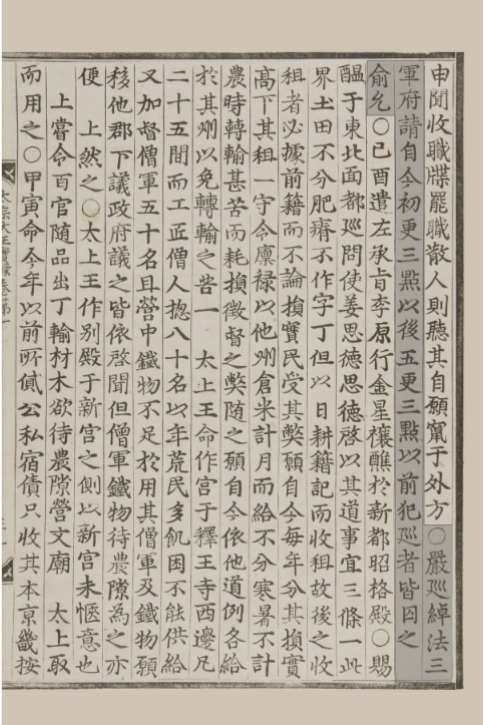 申聞收職牒罷職散人則聽其自願竄于外方○嚴巡綽法三
軍府請自今初更三點以後五更三點以前犯巡者皆囚之
俞允○己酉遣左承旨李原行金星禳醮於新都昭格殿○賜
醞于東北面都巡問使姜思德思德啓以其道事宜三條一此
界土田不分肥瘠不作字丁但以日耕籍記而收租故後之收
租者必據前籍而不論損實民受其弊願自今每年分其損實
高下其租一守令廩祿以他州倉米計月而給不分寒暑不計
農時轉輸甚苦而耗損徵督之弊隨之願自今依他道例各給
於其州以免轉輸之苦一 太上王命作宮于釋王寺西邊凡
二十五間而工匠僧人摠八十名以年荒民多飢困不能供給
又加督僧軍五十名且營中鐵物不足於用其僧軍及鐵物願
移他郡下議政府議之皆依啓聞但僧軍鐵物待農隙爲之亦
便 上然之○太上王作別殿于新宮之側以新宮未愜意也
上嘗令百官隨品出丁輸材木欲待農隙營文廟 太上取
而用之○甲寅命今年以前所貸公私宿債只收其本京畿按
太宗大王實錄卷第一